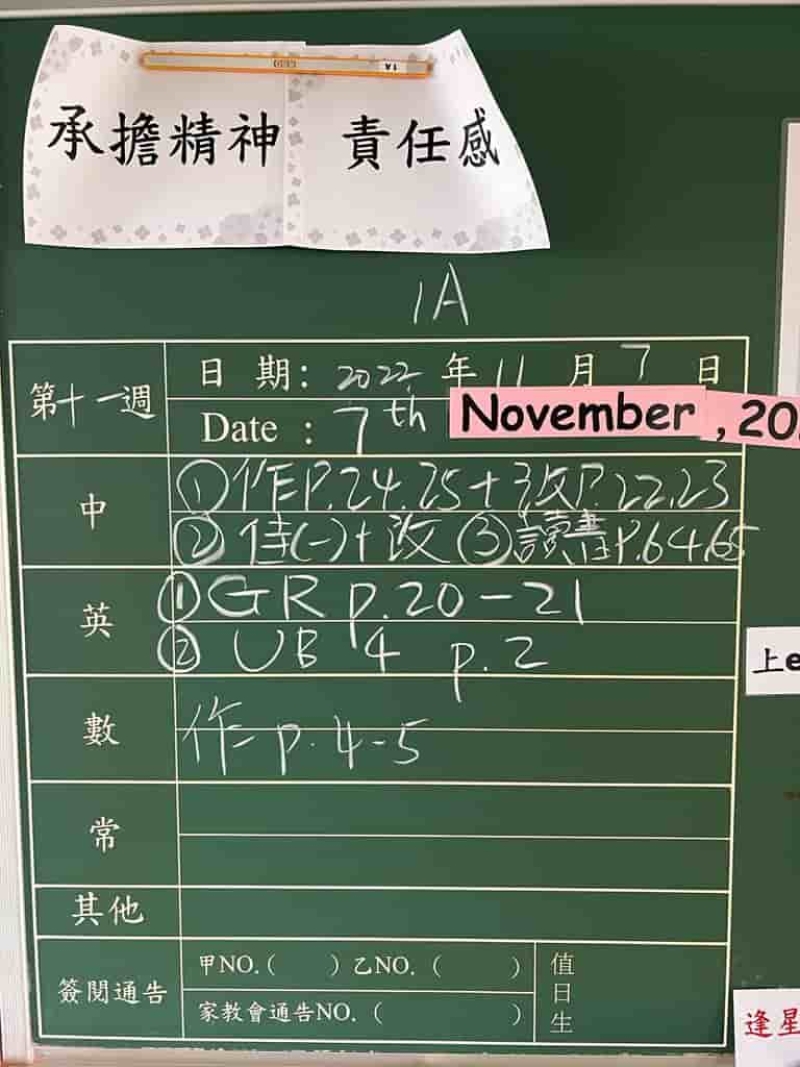 1A
承擔精神 責任感
1A
第十一週
日 期: 2022 年 11 月 7 日
Date : 7th November, 20
中
①作P.24.25+改P.22.23
②佳(一)+改 ③讀書P.64,65
英
①GR p.20-21
② UB 4 p.2
數
作 p.4-5
常
其他
簽閱通告
甲NO.( ) 乙NO.( )
家教會通告NO.( )
值日生
上e
逢星